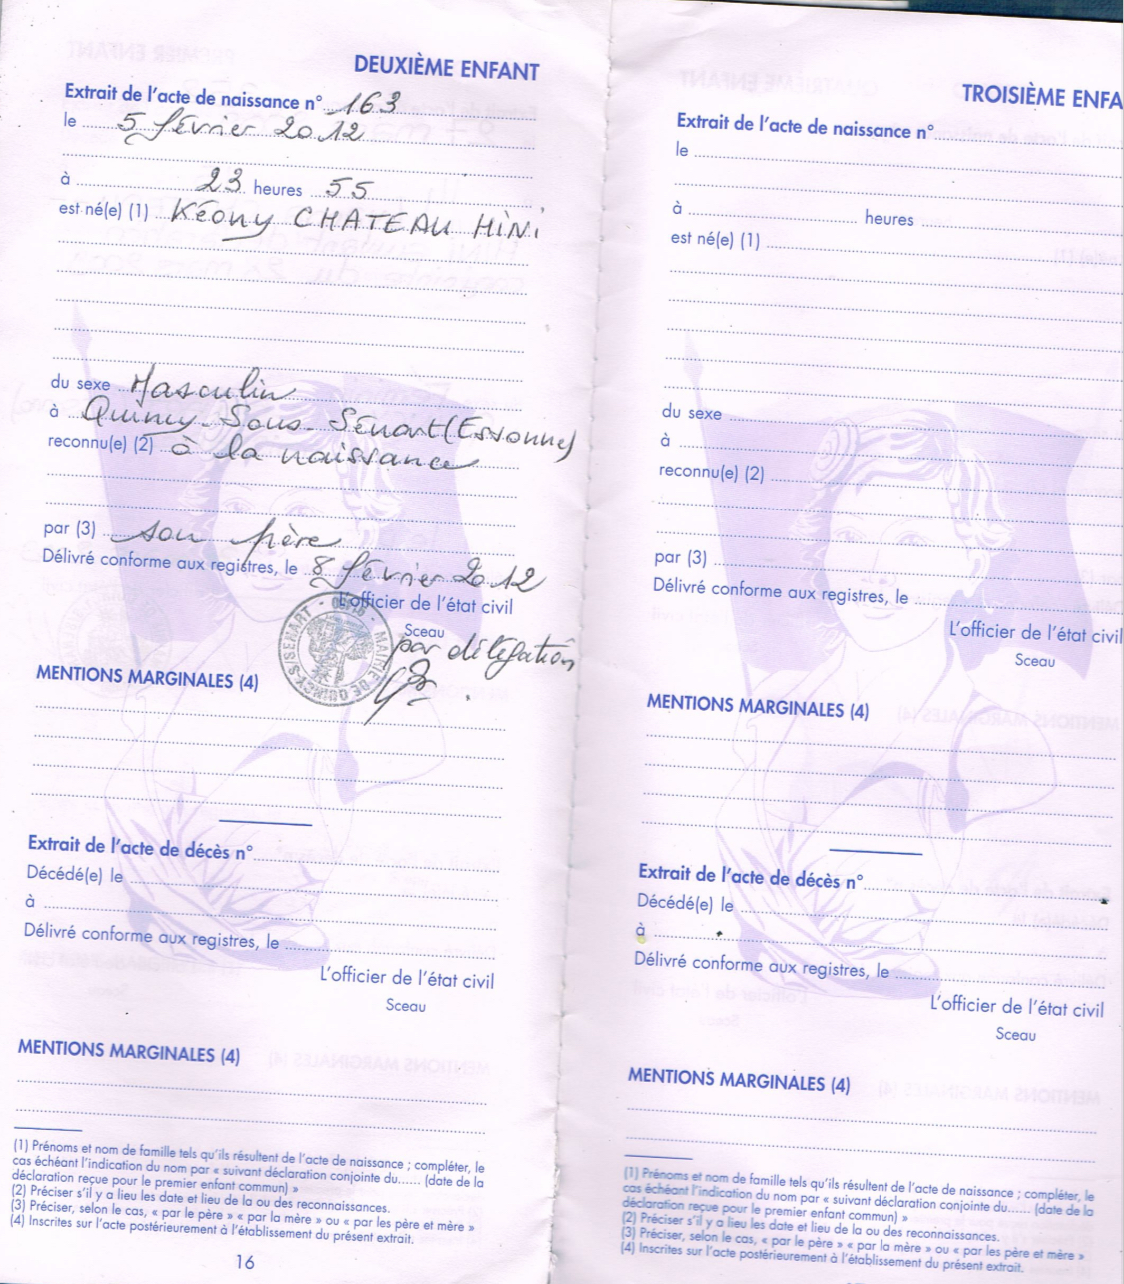 DEUXIÈME ENFANT
Extrait de l'acte de naissance n° 163
le 5 février 2012
à 23 heures 55
est né(e) (1) Kéony CHATEAU HINI
du sexe Masculin
à Quincy-Sous-Sénart (Essonne)
reconnu(e) (2) à la naissance
par (3) son père
Délivré conforme aux registres, le 8 février 2012
L'officier de l'état civil
Sceau
par délégation
MAIRIE DE QUINCY S/SENART
MENTIONS MARGINALES (4)
Extrait de l'acte de décès n°
Décédé(e) le
à
Délivré conforme aux registres, le
L'officier de l'état civil
Sceau
MENTIONS MARGINALES (4)
(1) Prénoms et nom de famille tels qu'ils résultent de l'acte de naissance ; compléter, le
cas échéant l'indication du nom par « suivant déclaration conjointe du...... (date de la
déclaration reçue pour le premier enfant commun) »
(2) Préciser s'il y a lieu les date et lieu de la ou des reconnaissances.
(3) Préciser, selon le cas, « par le père » « par la mère » ou « par les père et mère »
(4) Inscrites sur l'acte postérieurement à l'établissement du présent extrait.
16
TROISIÈME ENFA
Extrait de l'acte de naissance n°
le
à heures
est né(e) (1)
du sexe
à
reconnu(e) (2)
par (3)
Délivré conforme aux registres, le
L'officier de l'état civil
Sceau
MENTIONS MARGINALES (4)
Extrait de l'acte de décès n°
Décédé(e) le
à
Délivré conforme aux registres, le
L'officier de l'état civil
Sceau
MENTIONS MARGINALES (4)
(1) Prénoms et nom de famille tels qu'ils résultent de l'acte de naissance ; compléter, le
cas échéant l'indication du nom par « suivant déclaration conjointe du...... (date de la
déclaration reçue pour le premier enfant commun) »
(2) Préciser s'il y a lieu les date et lieu de la ou des reconnaissances.
(3) Préciser, selon le cas, « par le père » « par la mère » ou « par les père et mère »
(4) Inscrites sur l'acte postérieurement à l'établissement du présent extrait.